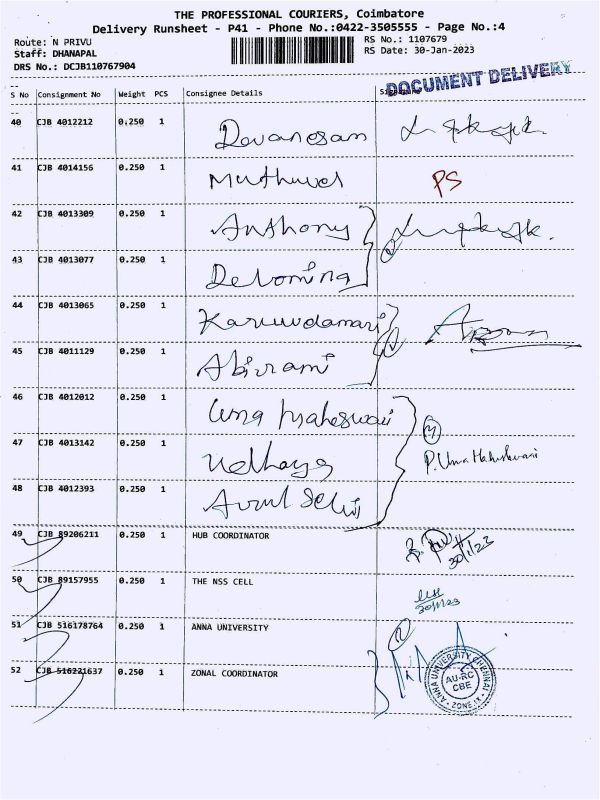 THE PROFESSIONAL COURIERS, Coimbatore
Delivery Runsheet - P41 - Phone No.:0422-3505555 - Page No.:4
Route: N PRIVU
RS No.: 1107679
Staff: DHANAPAL
RS Date: 30-Jan-2023
DRS No.: DCJB110767904
DOCUMENT DELIVERY
S No Consignment No Weight PCS Consignee Details
40 CJB 4012212 0.250 1 Devanesam
41 CJB 4014156 0.250 1 Muthuvel PS
42 CJB 4013309 0.250 1 Anthony
43 CJB 4013077 0.250 1
44 CJB 4013065 0.250 1
45 CJB 4011129 0.250 1 Abirami
46 CJB 4012012 0.250 1 Uma Maheswari
47 CJB 4013142 0.250 1 Udhaya P. Uma Maheshwari
48 CJB 4012393 0.250 1
49 CJB 89206211 0.250 1 HUB COORDINATOR 30/1/23
50 CJB 89157955 0.250 1 THE NSS CELL
51 CJB 516178764 0.250 1 ANNA UNIVERSITY
52 CJB 516221637 0.250 1 ZONAL COORDINATOR
ANNA UNIVERSITY CHENNAI
AU-RC
CBE